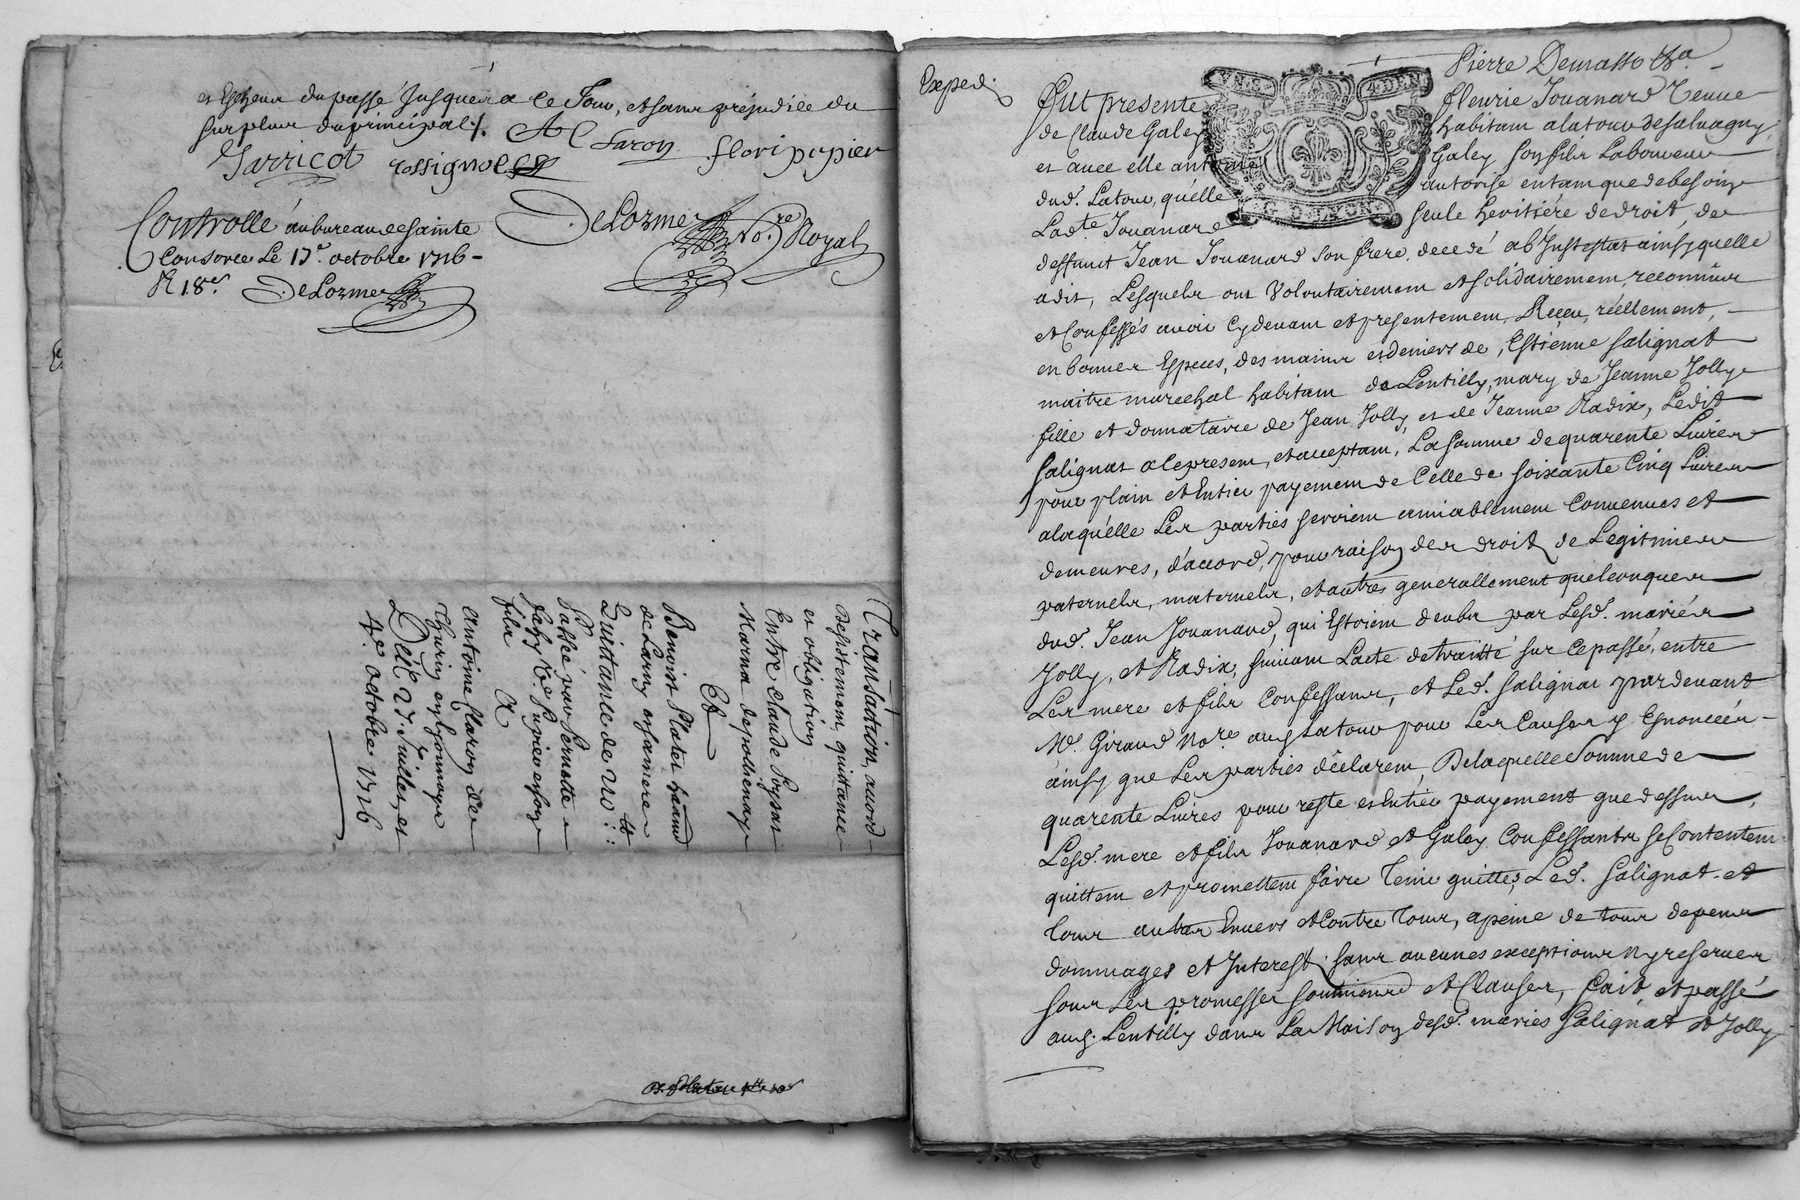 et Escheus du passé jusques a ce Jour, et sans préjudice du
surplus du principal ./.
A Claron floripepier
Jarricot rossignol
Controllé au bureau de sainte
Consorce Le 17e. octobre 1716 -
R 18s. DeLorme
DeLorme No.re Royal
Transaction, accord
Desistement, quittance
et obligation
Entre Claude
Et
Benoist
quittance de 210 ::
Passée par Pernette
fils A
Antoine Claron des
Thurin et Lyonnoys
Du 27. Juillet, et
4e. octobre. 1716
Exped.
Pierre
Fut presente fleurie Jouanard veuve
de Claude Galey habitant a latour de saluagny,
et avec elle antoine Galey son fils Laboureur
dud. Latour, qu'elle autorise entant que de besoing
Lad.te Jouanard seule heritiére de droit, de
deffunct Jean Jouanard son frere, decedé ab Jntestat ainsy quelle
a dit, Lesquels ont volontairement et solidairement, reconnus
et Confessés avoir Cydevant et presentement, Reçeu, réellement,
en bonnes Especes, des mains et deniers de, Estienne Salignat
maitre marechal habitant de Lentilly, mary de Jeanne Jolly
fille et donnataire de Jean Jolly, et de Jeanne Radix, Ledit
Salignat a Ce present, et acceptant, La somme de quarente Livres
pour plain et Entier payement de Celle de soixante Cinq Livres
a laquélle Les parties seroient amiablement Convenues et
demeures, d'accord, pour raison des droits de Legitimes
paternels, maternels, et autres generallement quelconques
dud. Jean Jouanard, qui Estoient deubs par Lesd. mariés
Jolly, et Radix, suivant Lacte de traitté sur Ce passé, entre
Les mere et fils Confessans, et Led. Salignat pardevant
Me. Giraud No.re aud Latour pour Les Causes y Enoncéés -
ainsy que Les parties déclarent, De laquelle Somme de
quarente Livres pour reste et Entier payement que dessus,
Lesd. mere et fils Jouanard et Galey Confessants se Contentent
quittent et promettent faire tenir quittes, Led. Salignat et
tous autres Envers et Contre tous, a peine de tous depens
dommages et Interest, sans aucunes exceptions ny reserves
sous Les promesses soumissions et Clauses, fait et passé
aud. Lentilly dans La Maison desd. mariés Salignat et Jolly